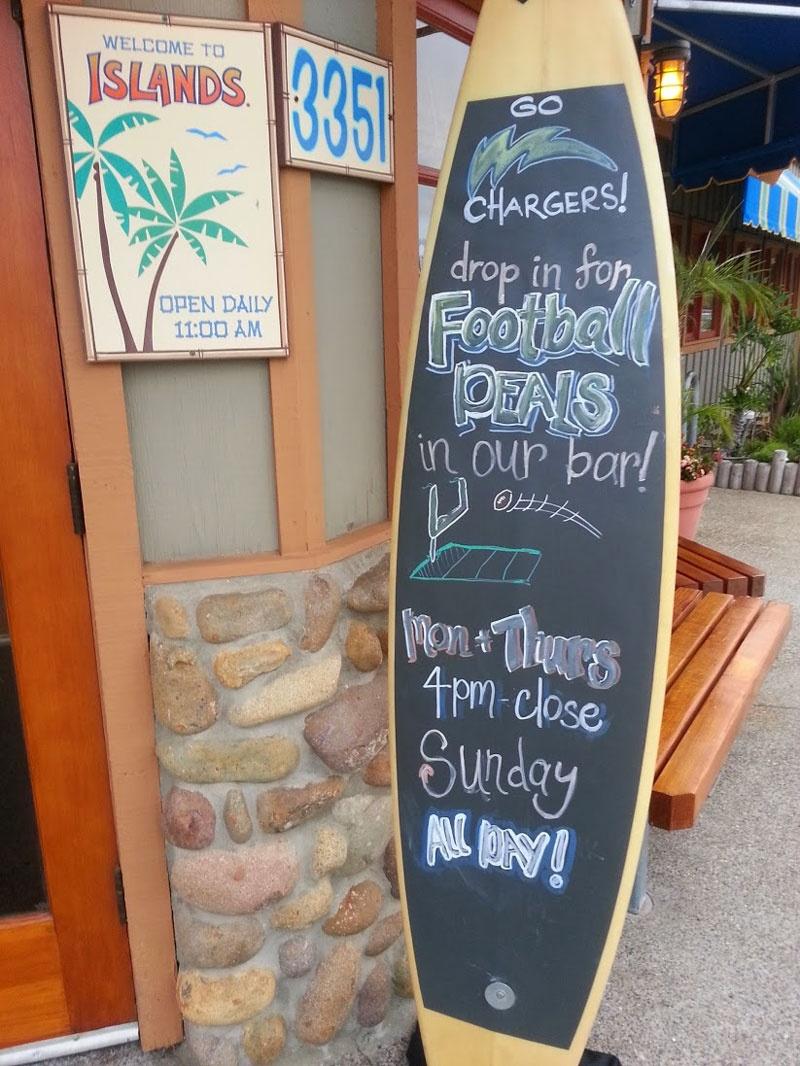 WELCOME TO
ISLANDS
OPEN DAILY
11:00 AM
3351
GO
CHARGERS!
drop in for
Football
DEALS
in our bar!
Mon + Thurs
4pm-close
Sunday
ALL DAY!